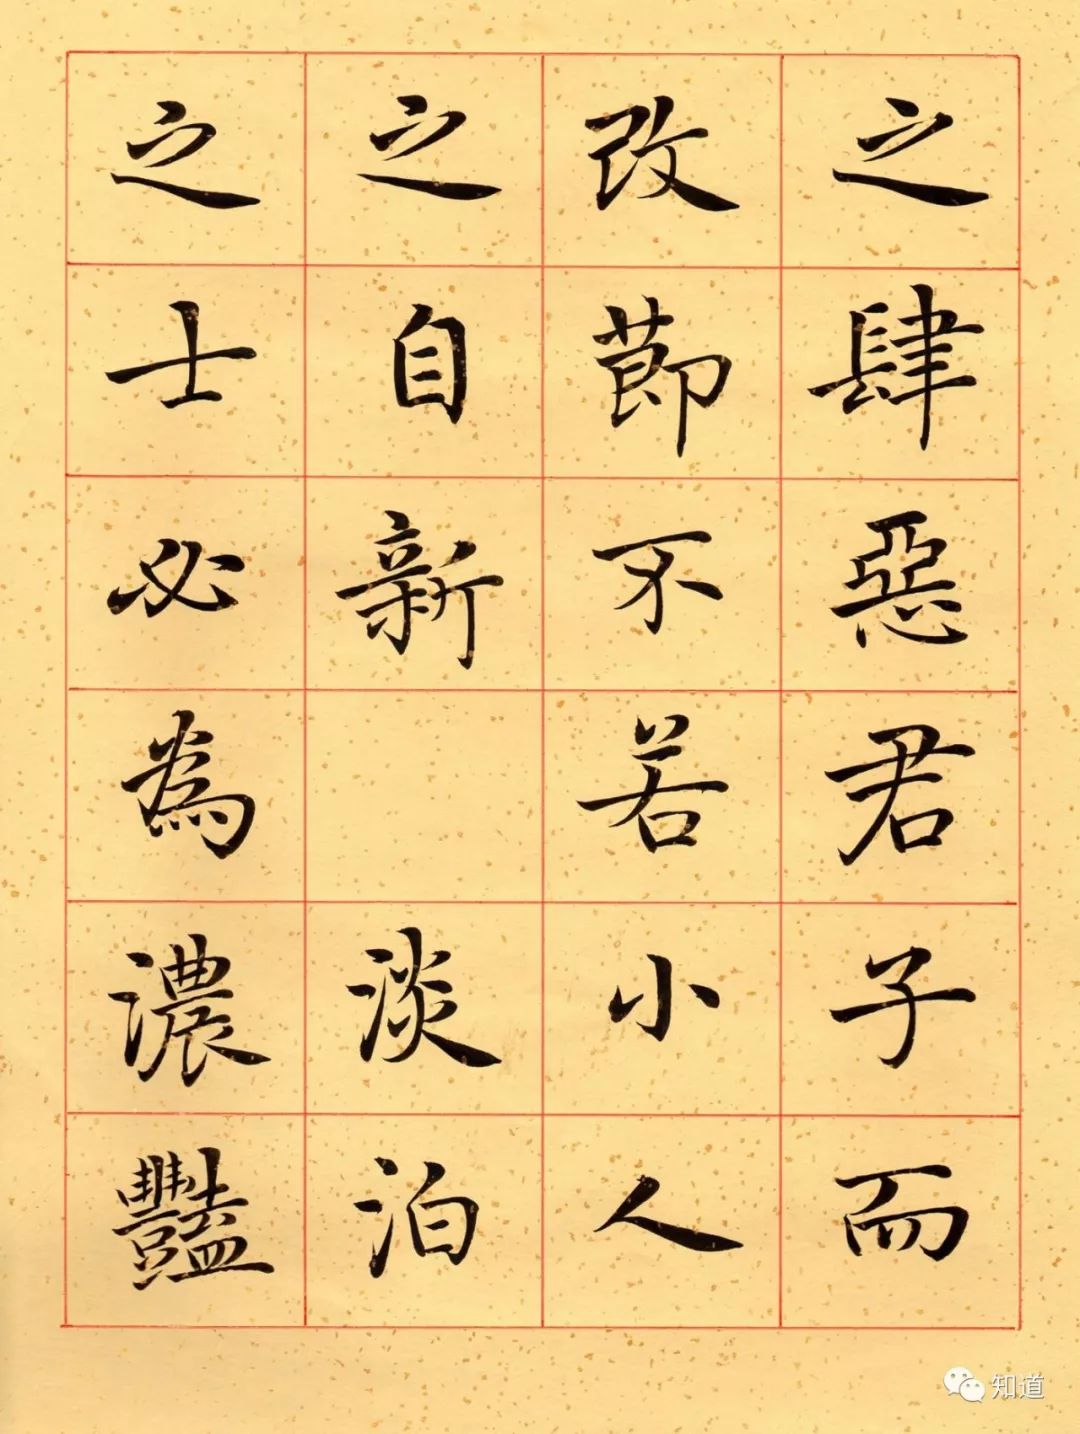 之肆惡君子而
改節不若小人
之自新 淡泊
之士必為濃豔
知道